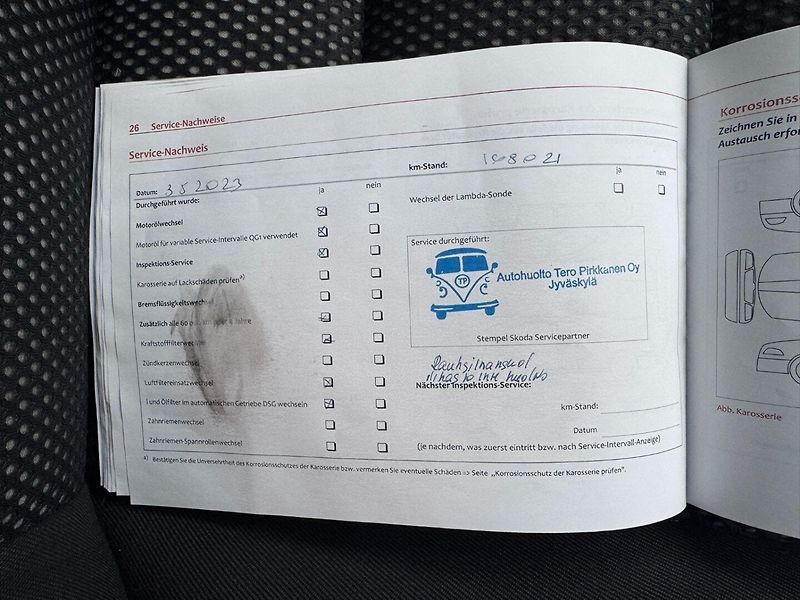 26 Service-Nachweise
Service-Nachweis
Datum: 3 5 2023
ja
nein
Durchgeführt wurde:
Motorölwechsel
Motoröl für variable Service-Intervalle QG1 verwendet
Inspektions-Service
Karosserie auf Lackschäden prüfen a)
Bremsflüssigkeitswechsel
Zusätzlich alle 60 Jahre
Kraftstofffilterwechsel
Zündkerzenwechsel
Luftfiltereinsatzwechsel
l und Ölfilter im automatischen Getriebe DSG wechseln
Zahnriemenwechsel
Zahnriemen-Spannrollenwechsel
km-Stand: 198021
ja
nein
Wechsel der Lambda-Sonde
Service durchgeführt:
TP
Autohuolto Tero Pirkkanen Oy
Jyväskylä
Stempel Skoda Servicepartner
Nächster Inspektions-Service:
km-Stand:
Datum
(je nachdem, was zuerst eintritt bzw. nach Service-Intervall-Anzeige)
a) Bestätigen Sie die Unversehrtheit des Korrosionsschutzes der Karosserie bzw. vermerken Sie eventuelle Schäden => Seite „Korrosionsschutz der Karosserie prüfen".
Korrosionss
Zeichnen Sie in
Austausch erfor
Abb. Karosserie